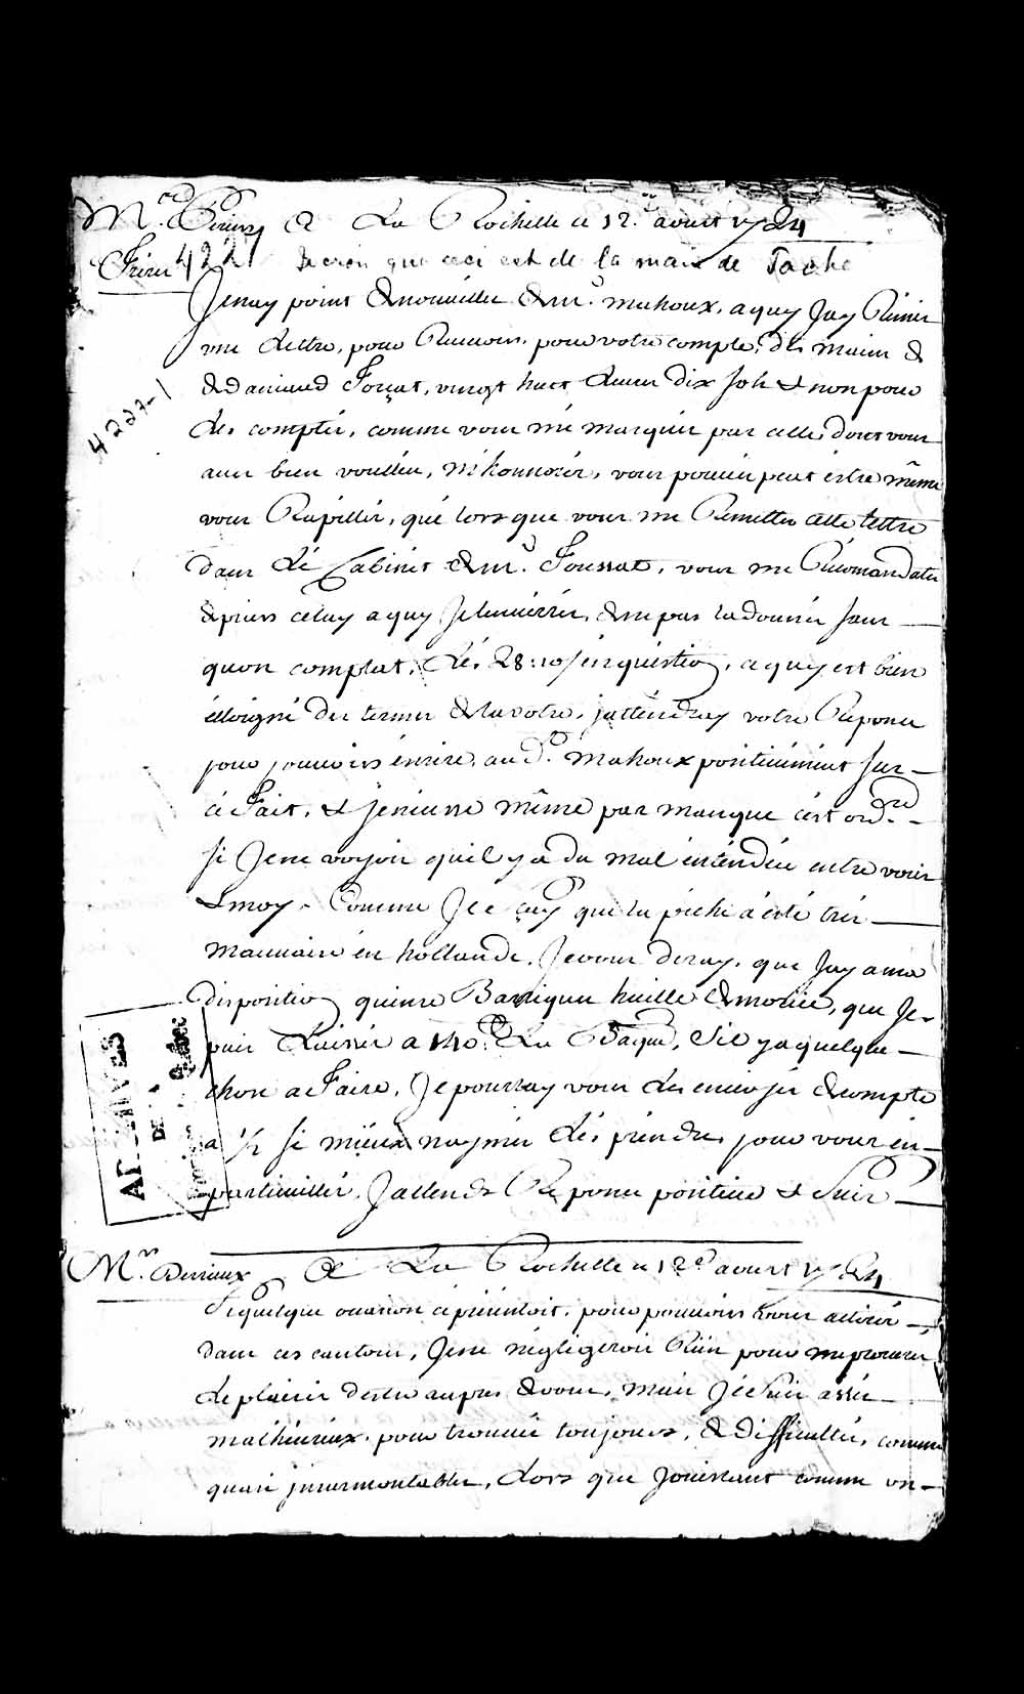 Mrs. Périer & La Rochelle ce 12e aoust 1724
Frères 422 Je crois que ceci est de la main de Taché
Jenay point de nouvelles de mr. mahoux, a quy Jay Rémis
une lettre, pour Recevoir, pour votre compte, des mains de
de Daniaud Forçat, vingt huit livres dix sols & non pour
les comptér, comme vous mé marquéz par celle dont vous
avez bien voulleu, m'honnorér, vous pouvéz peut éstre même
vous Rapéllér, qué lors que vous me Remittes cette lettre
dans lé Cabinét de mr. Foussat, vous me Récomandates
de priér celuy a quy Je lenvérrés, de ne pas la donnér sans
quon comptat, lés 28:10s en quéstion, ce quy est bien
élloigné des termes de la votre, jatténdray votre Réponce
pour pouvoir écrire, au dt. Mahoux positivémént sur
cé Fait, & jéniusse même pas manqué cést ordre.
si Je ne voyois quil y a du mal énténdeu entre vous
& moy. Comme Je sçay que la péche a été trés
mauvaise én hollande, Je vous diray, que Jay a ma
disposition quinze Barriques huille de morüe, que Je
puis laissér a 140 # La Baque, Sil ya quelque
chose a Faire, Je pourray vous les envoyér de compte
a ½ si miéux naymés lés préndre, pour vous én
particulliér, Jattends Réponce positive & Suis
4227-1
ARCHIVES
DE LA
Québec
Mr. Derrieux & La Rochelle ce 12e aoust 1724
Si quelque occasion cé présentoit, pour pouvoir vous attirér
dans ces cantons, Je ne négligerois Rién pour me procurer
le plaisir destre aupres de vous, mais Jé Suis assés
malheuréux pour trouvér toujours, de difficultés, comme
quasi jnsurmontables, Lors que Jouissant comme on